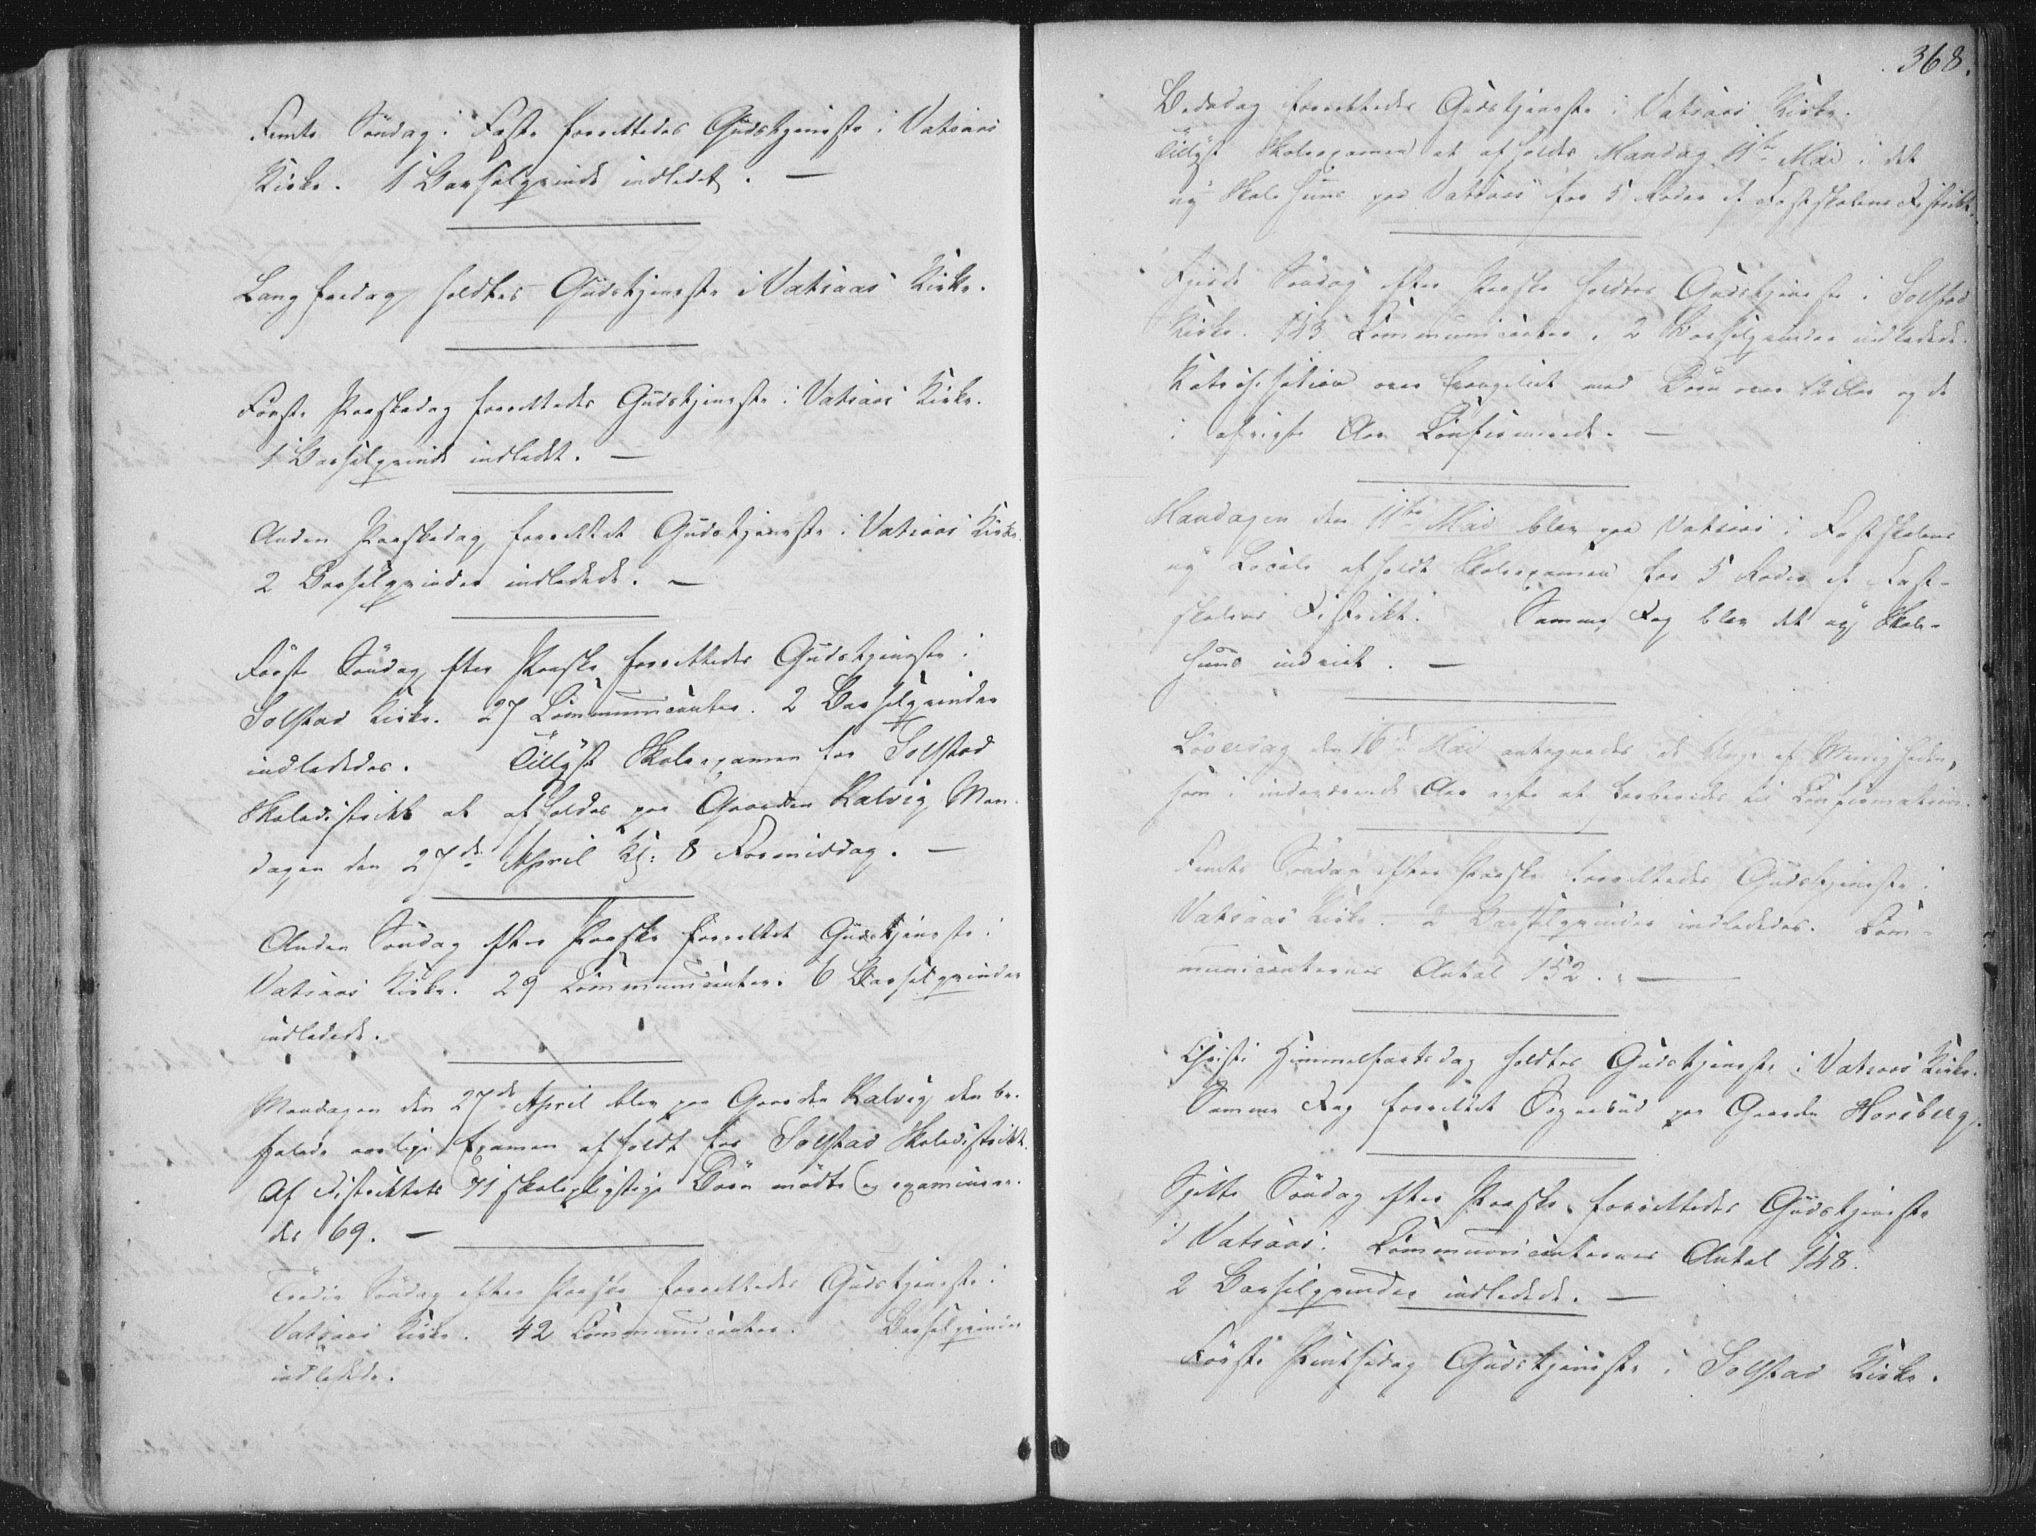 Femte Söndag i Faste forrettedes Gudstjeneste i Vatsaas
Kirke. 1 Barselqvinde indledet. —
Langfredag holdtes Gudstjeneste i Vatsaas Kirke.
Förste Paaskedag forrettedes Gudstjeneste i Vatsaas Kirke.
1 Barselqvinde indledet. —
Anden Paaskedag forrettet Gudstjeneste i Vatsaas Kirke.
2 Barselqvinder indledede. —
Förste Söndag efter Paaske forrettedes Gudstjeneste i
Solstad Kirke. 27 Communicanter. 2 Barselqvinder
indlededes. Tillyst Skoleexamen for Solstad
Skoledistrikt at afholdes paa Gaarden Kalvig Man-
dagen den 27de April Kl: 8 Formiddag. —
Anden Söndag efter Paaske forrettet Gudstjeneste i
Vatsaas Kirke. 29 Communicanter. 6 Barselqvinder
indledede.
Mandagen den 27de April blev paa Gaarden Kalvig den be-
falede aarlige Examen afholdt for Solstad Skoledistrikt.
Af Distriktets 71 skolepligtige Börn mödte og examinere-
des 69. —
Tredie Söndag efter Paaske forrettedes Gudstjeneste i
Vatsaas Kirke. 42 Communicanter. Barselqvinder
indledede.
368.
Bededag forrettedes Gudstjeneste i Vatsaas Kirke.
Tillyst Skoleexamen at afholdes Mandag 11te Mai i det
ny Skolehuus paa Vatsaas for 5 Roder af Fastskolens Distrikt.
Fjerde Söndag efter Paaske holdtes Gudstjeneste i Solstad
Kirke. 143 Communicanter. 2 Barselqvinder indledede.
Katechisation over Evangeliet med Börn over 12 Aar og de
i afvigte Aar Confirmerede. —
Mandagen den 11te Mai blev paa Vatsaas i Fastskolens
ny Locale afholdt Skoleexamen for 5 Roder af Fast-
skolens Distrikt. Samme Dag blev det ny Skole-
huus indviet. —
Löverdag den 16de Mai antegnedes de Unge af Menigheden,
som i indeværende Aar agte at forberedes til Confirmation.
Femte Söndag efter Paaske forrettedes Gudstjeneste i
Vatsaas Kirke. 2 Barselqvinder indlededes. Com-
municanternes Antal 152. —
Christi Himmelfartsdag holdtes Gudstjeneste i Vatsaas Kirke.
Samme Dag forrettet Sognebud paa Gaarden Horsberg.
Sjette Söndag efter Paaske forrettedes Gudstjeneste
i Vatsaas. Communicanternes Antal 148.
2 Barselqvinder indledede. —
Förste Pintsedag Gudstjeneste i Solstad Kirke.